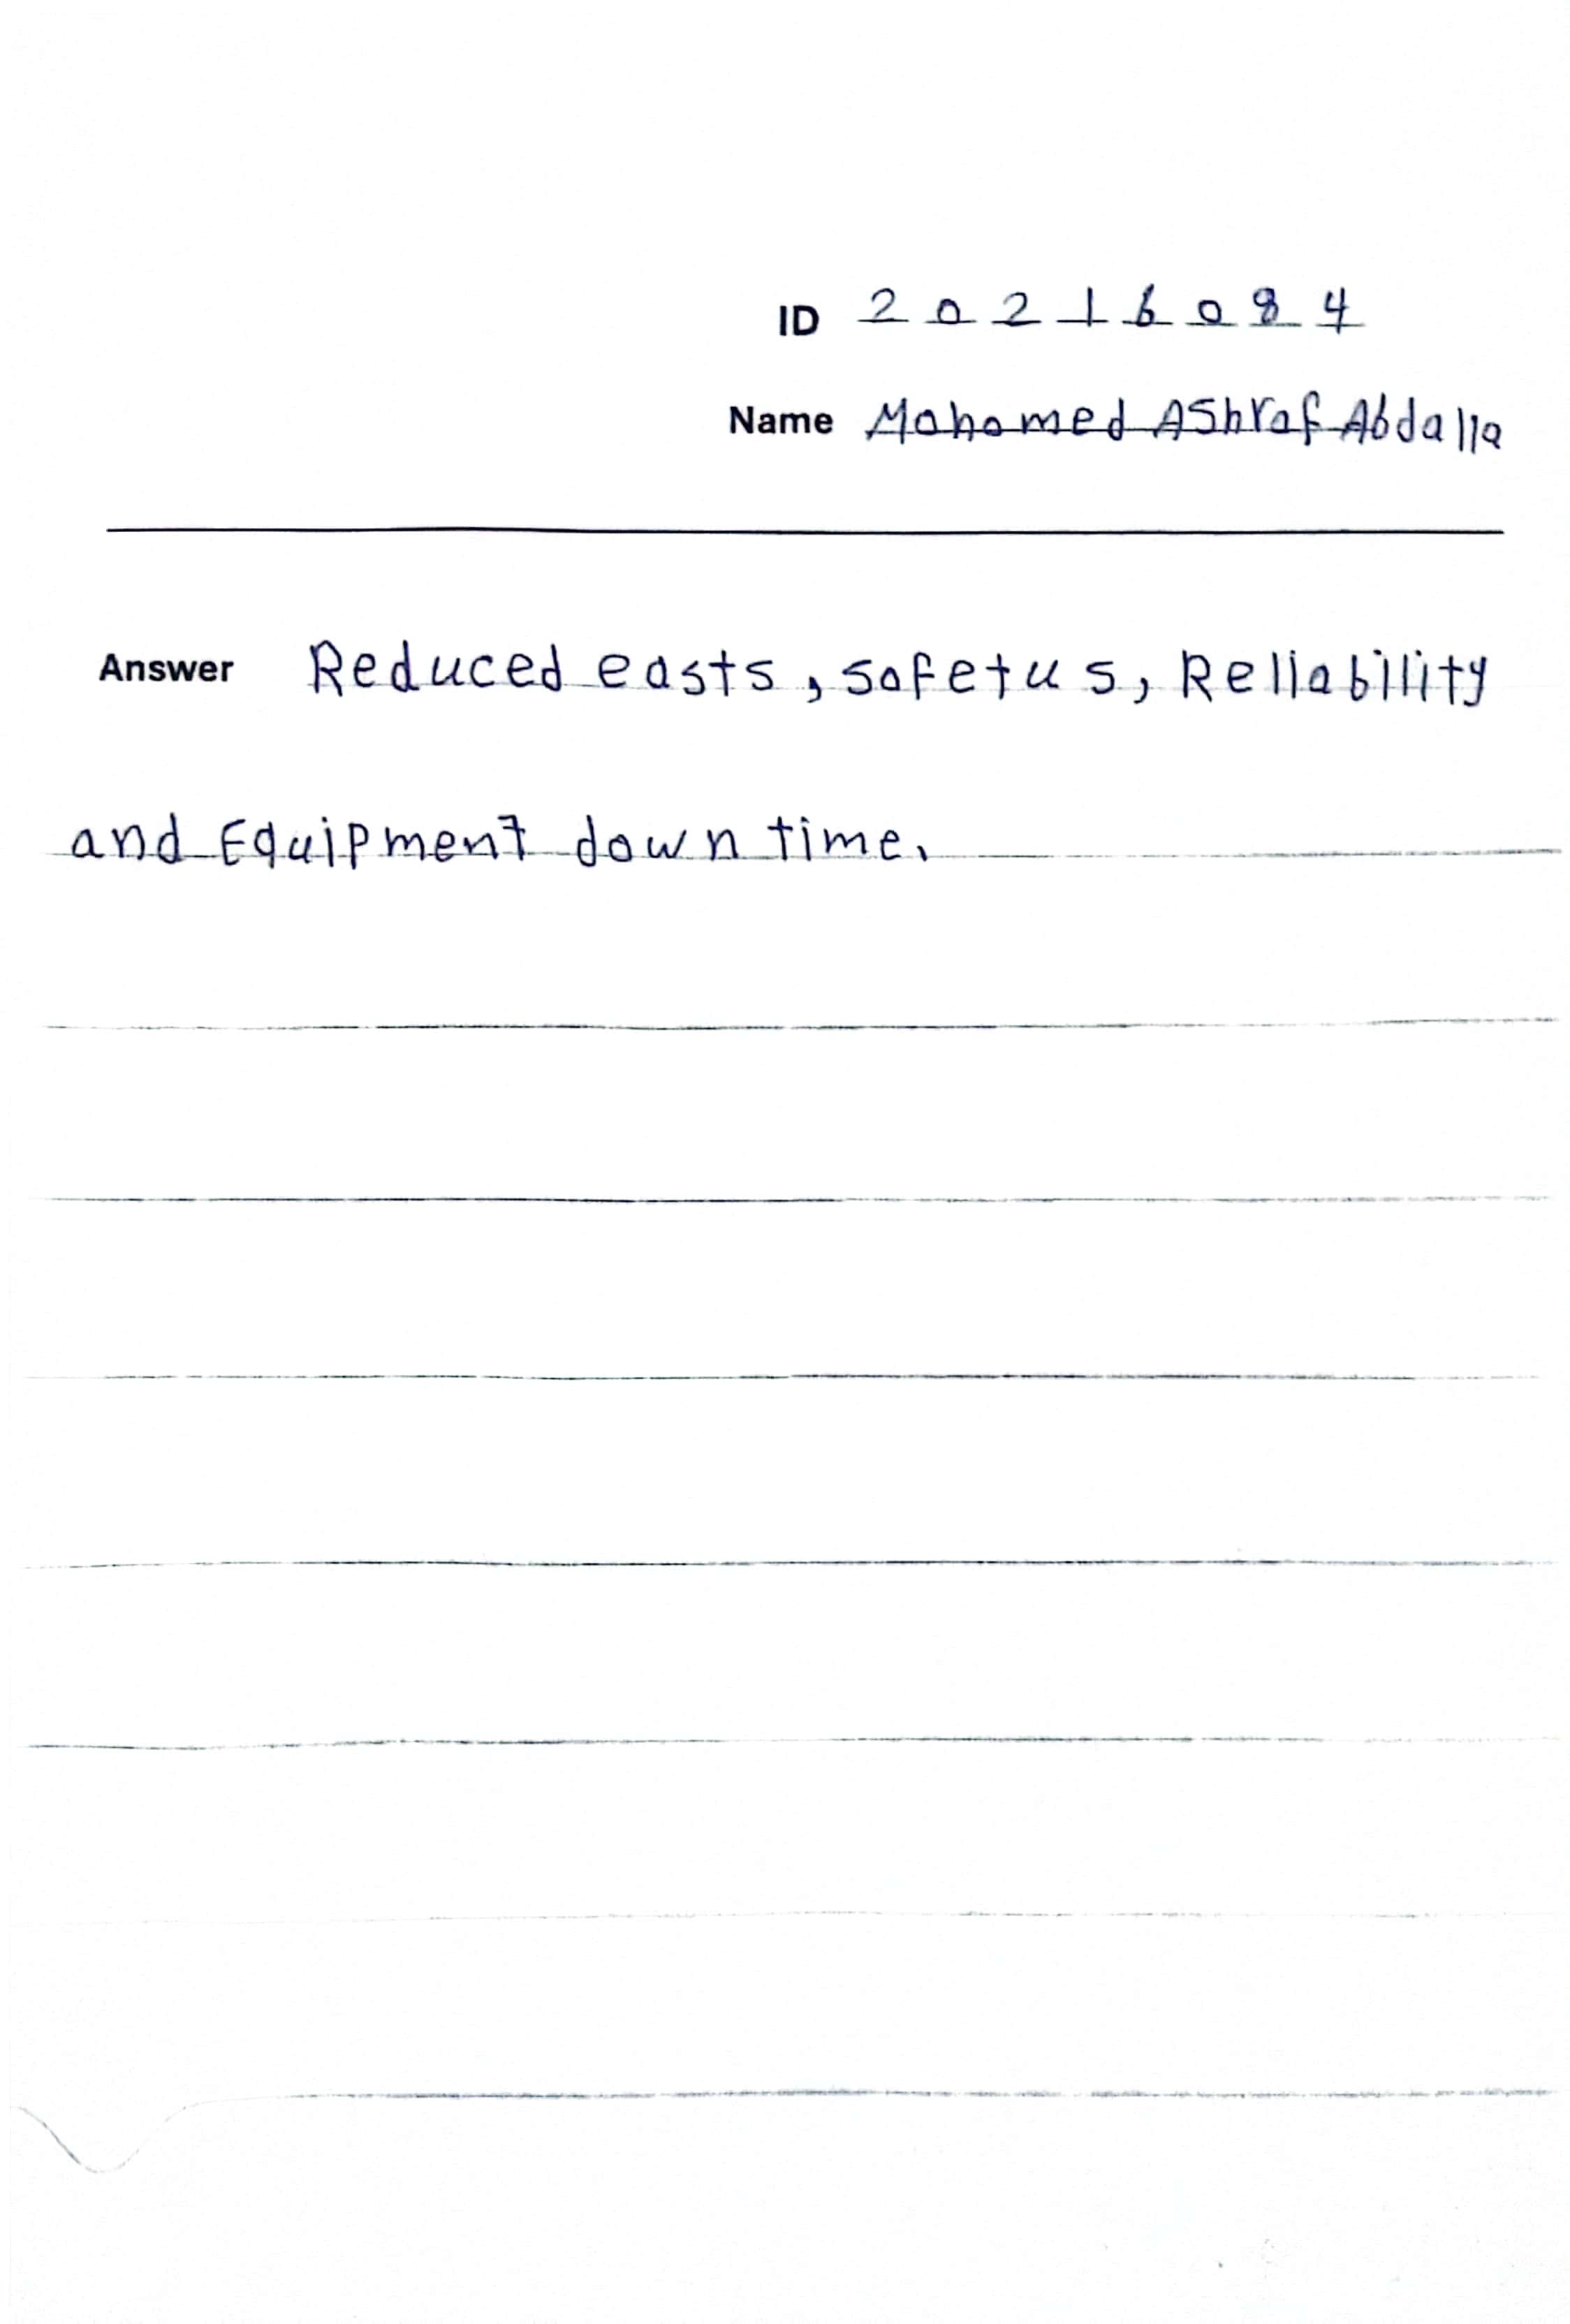 ID 20216084
Name Mohamed Ashraf Abdalla
Answer Reduced easts, safetus, Reliability
and Equipment down time.